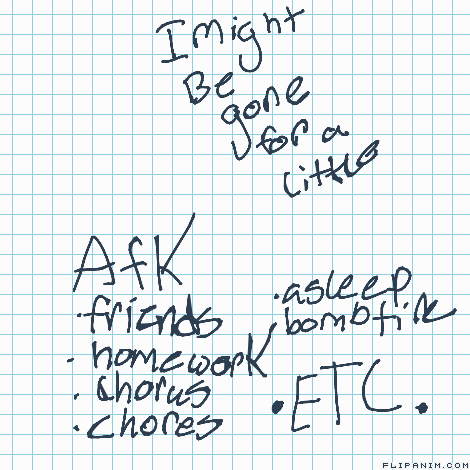 I might
Be
gone
for a
little
AfK
• friends
• homework
• chorus
• chores
• asleep
• bombfire
• ETC.
FLIPANIM.COM